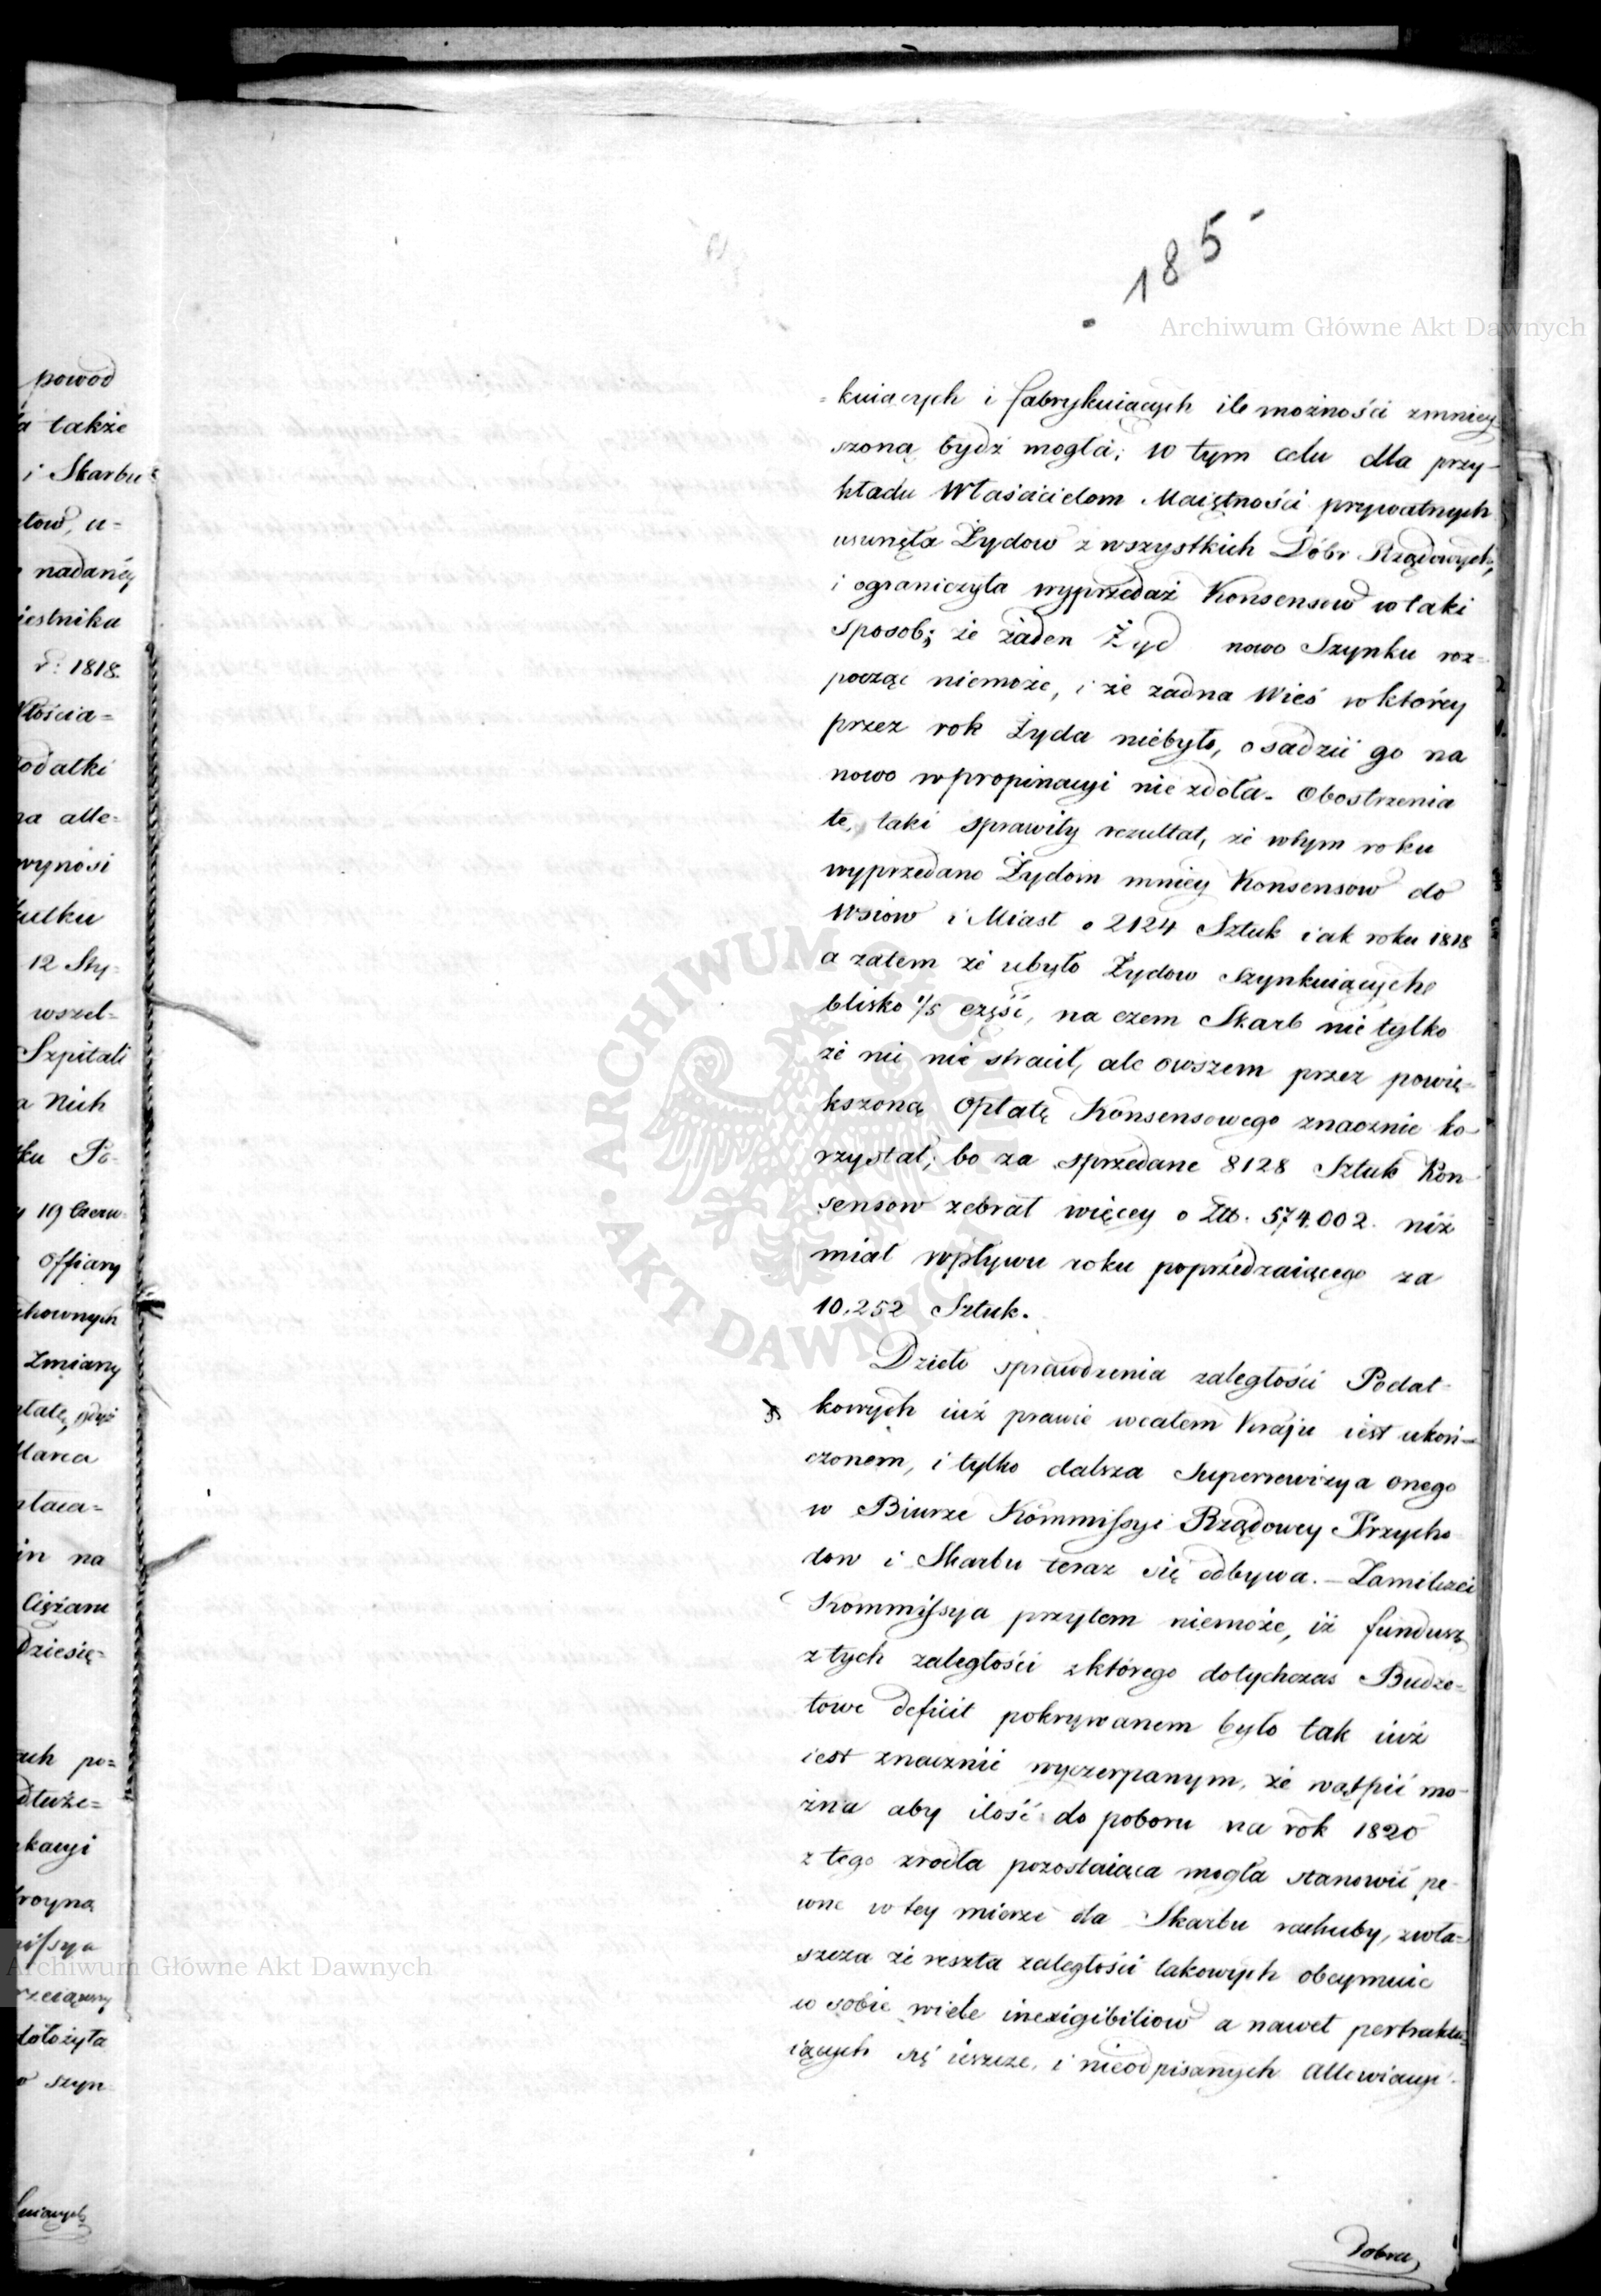 185
Archiwum Główne Akt Dawnych
powod
także
i Skarbu
u=
nadaney
1818.
wynosi
12 Sty=
wszel=
Szpitali
Nich
19 Czerw=
Offiary
Zmiany
in na
po=
dołożyła
szyn=
=kuiących i fabrykuiących ile możności zmniey=
szoną bydź mogła; w tym celu dla przy-
kładu Właścicielom Maiętności prywatnych
usunęła Żydow z wszystkich Dóbr Rządowych,
i ograniczyła wyprzedaż Konsensow w taki
sposob; że żaden Żyd nowo Szynku roz=
począć niemoże, i że żadna Wieś w którey
przez rok Żyda niebyło, osadzić go na
nowo w propinacyi nie zdoła. Obostrzenia
te, taki sprawiły rezultat, że w tym roku
wyprzedano Żydom mniey Konsensow do
Wsiow i Miast o 2124 Sztuk iak roku 1818
a zatem że ubyło Żydow Szynkuiących
blisko 1/5 część, na czem Skarb nie tylko
że nic nie stracił, ale owszem przez powię-
kszoną Opłatę Konsensowego znacznie ko-
rzystał; bo za sprzedane 8128 Sztuk Kon-
sensow zebrał więcey o Złł. 574.002. niż
miał wpływu roku poprzedzaiącego za
10.252 Sztuk.
Dzieło sprawdzenia zaległości Podat-
kowych iuż prawie w całem Kraju iest ukoń-
czonem, i tylko dalsza Superrewizya onego
w Biurze Kommissyi Rządowey Przycho-
dow i Skarbu teraz się odbywa. – Zamilczeć
Kommissya przytem niemoże, iż fundusz
z tych zaległości z którego dotychczas Budże-
towe deficit pokrywanem było tak iuż
iest znacznie wyczerpanym, że wątpić mo-
żna aby ilość do poboru na rok 1820
z tego zrodła pozostaiąca mogła stanowić pe-
wne w tey mierze dla Skarbu rachuby, zwła-
szcza że reszta zaległości takowych obeymuie
w sobie wiele inexigibiliow a nawet pertraktu=
iących się ieszcze, i nieodpisanych Allewiacyi.
Dobra
ARCHIWUM GŁÓWNE AKT DAWNYCH
Archiwum Główne Akt Dawnych